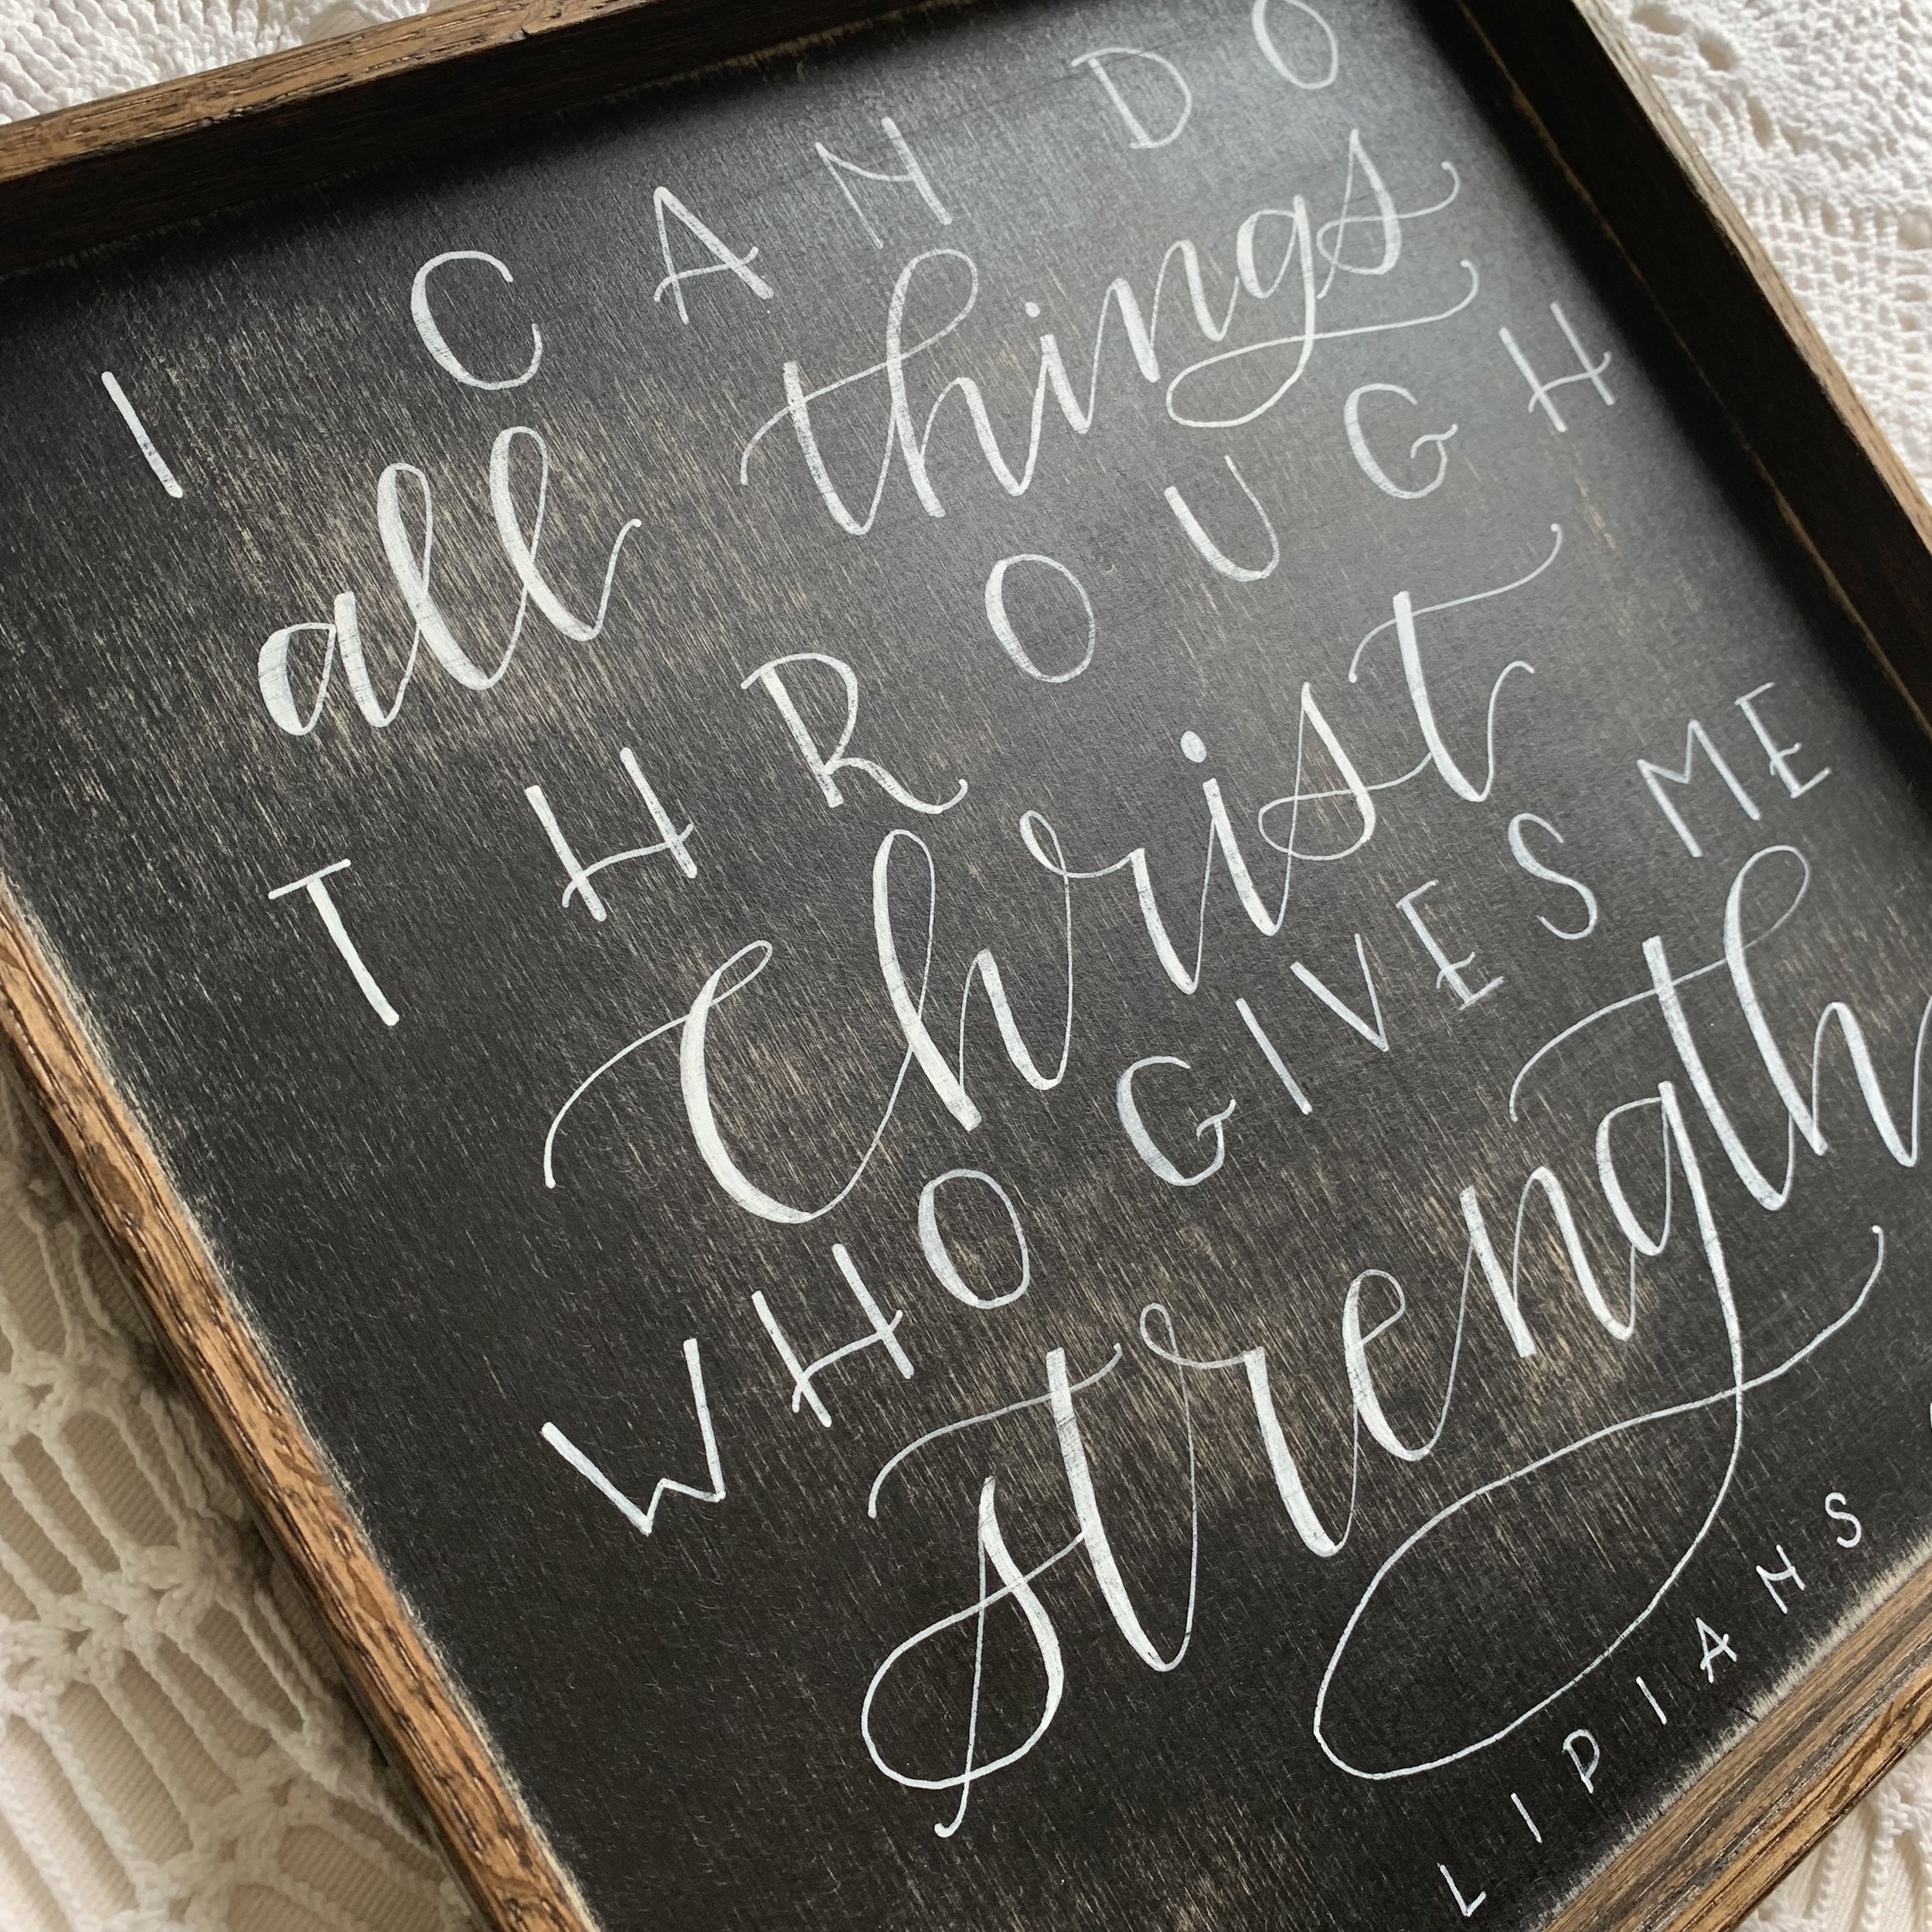 I CAN DO
all things
THROUGH
Christ
WHO GIVES ME
strength
LIPIANS